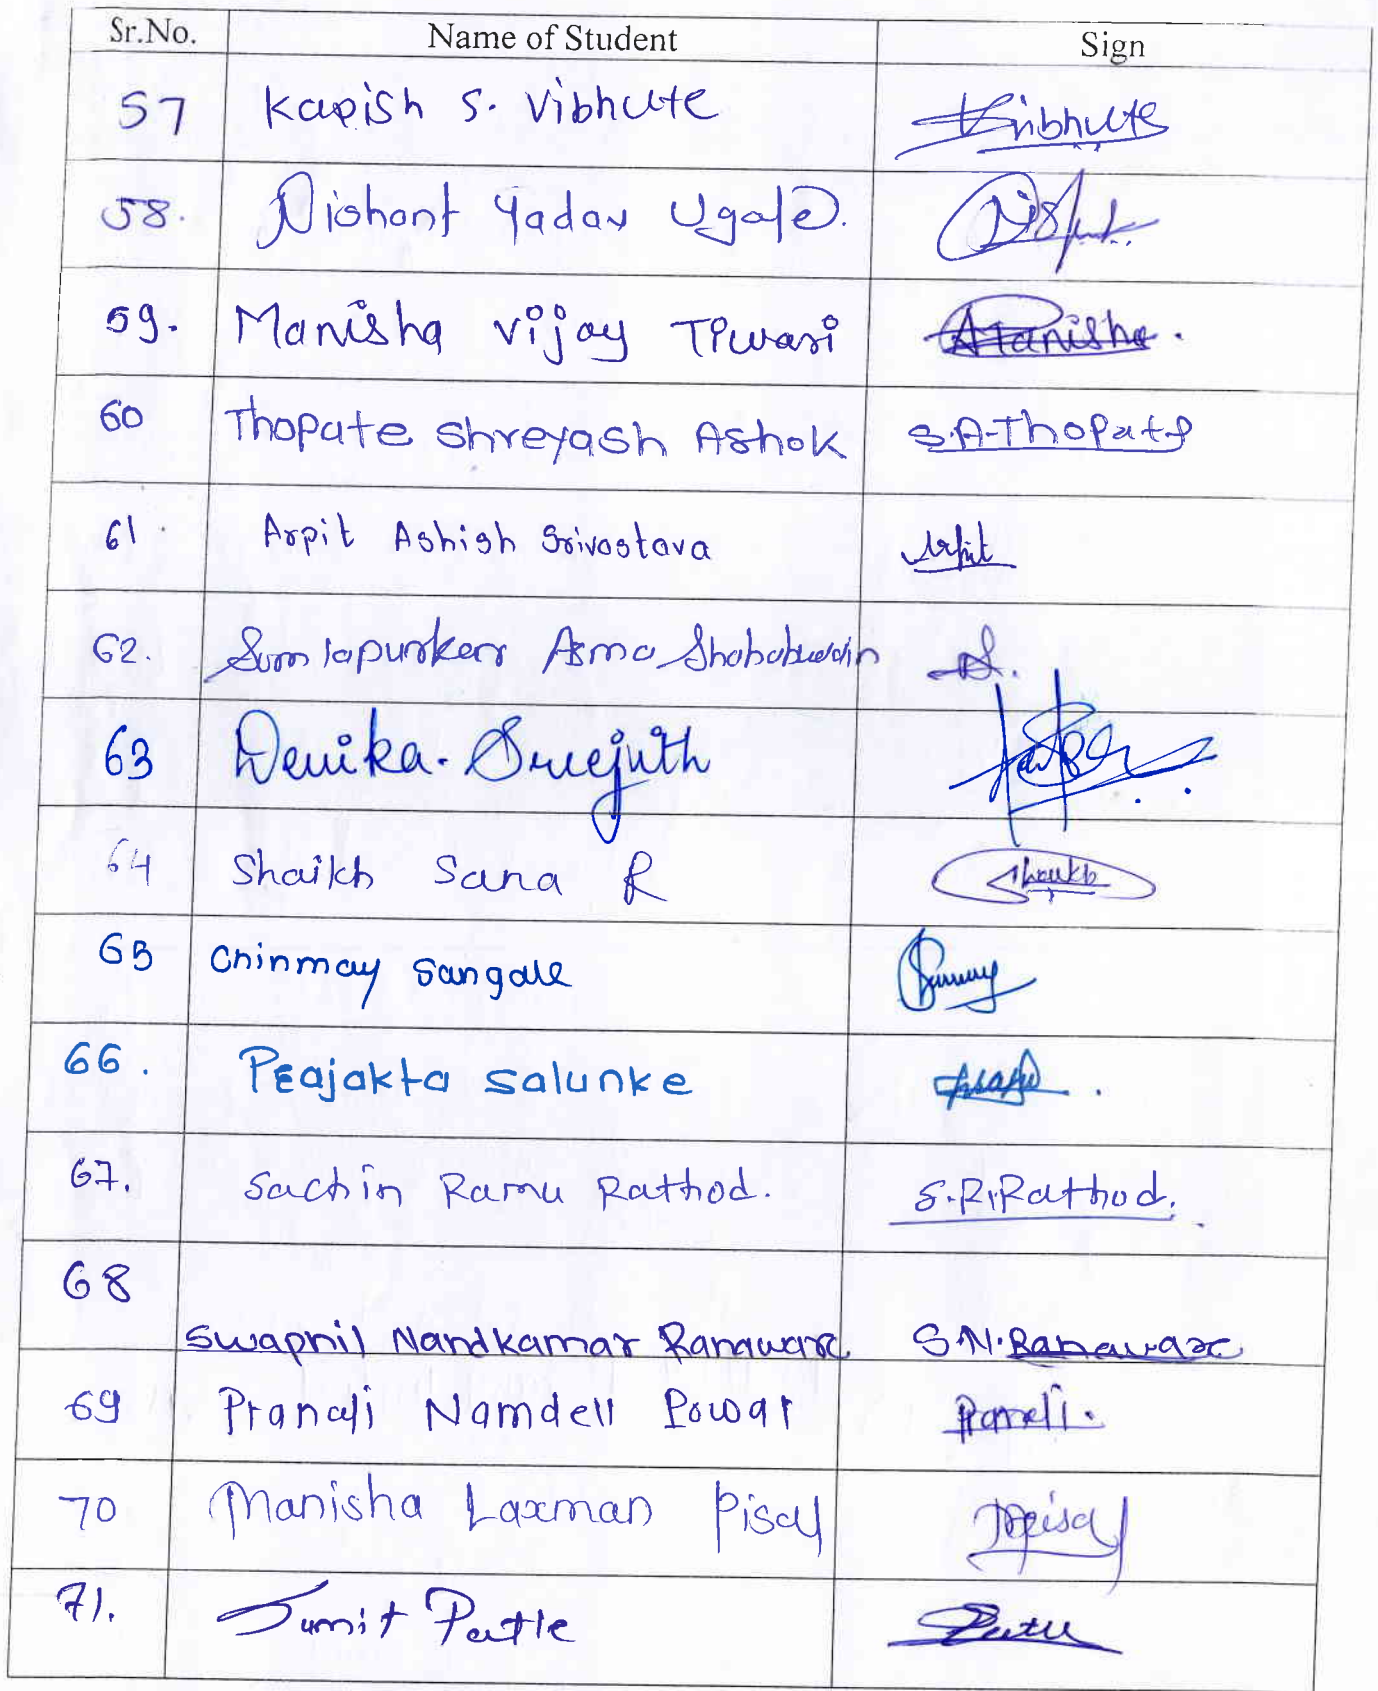 Sr.No. Name of Student Sign
57 Kapish S. Vibhute Vibhute
58. Nishant Yadav Ugale.
59. Manisha Vijay Tiwari Manisha.
60 Thopate Shreyash Ashok S.A.Thopate
61. Arpit Ashish Srivastava Arpit
62. Asma
63 Devika. Sreejith
64 Shaikh Sana R Shaikh
65 Chinmay Sangale
66. Prajakta Salunke
67. Sachin Ramu Rathod. S.R.Rathod.
68
Swapnil Nandkamar Ranaware S.N.Ranaware
69 Pranali Namdeu Powar Pranali.
70 Manisha Laxman Pisal
71. Sumit Patle